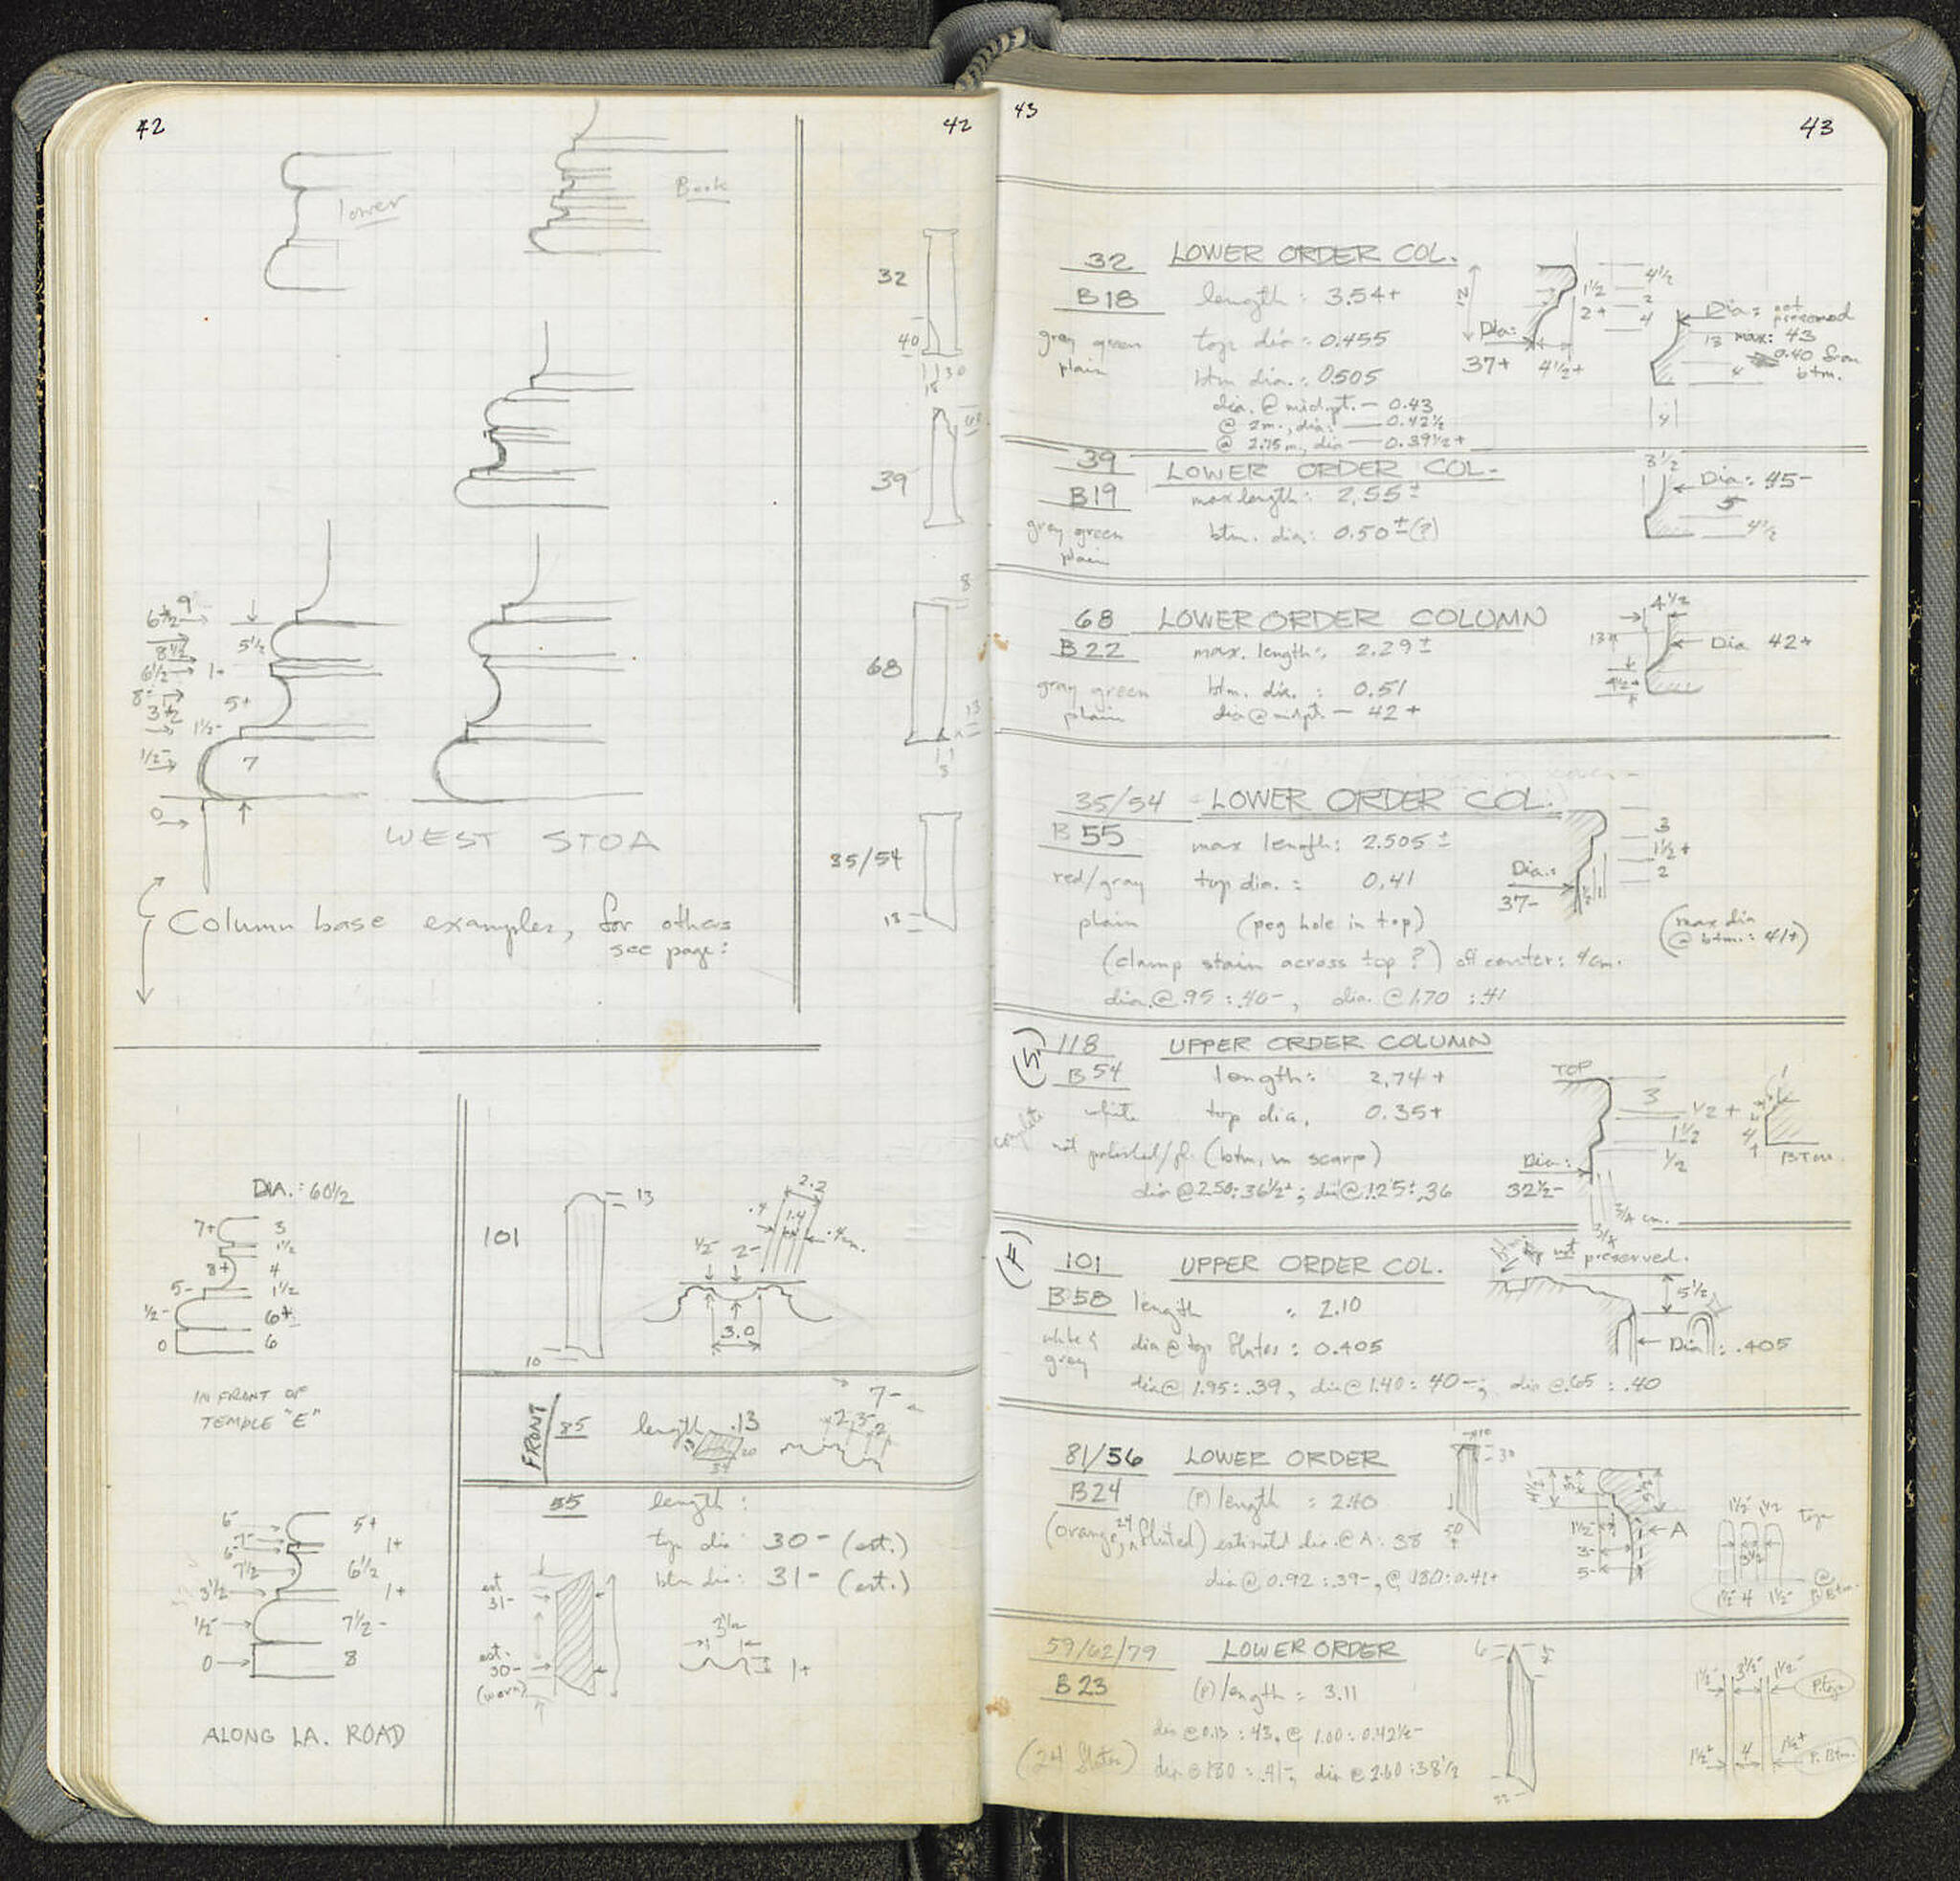 42
42
lower
Book
6 1/2
9
8 1/2
5 1/2
6 1/2
1-
5+
1 1/2-
1/2-
7
0
WEST STOA
Column base examples, for others
see page:
32
40
39
68
8
13
35/54
13
DIA.: 60 1/2
7+ 3
1 1/2
8+ 4
5- 1 1/2
1/2- 6+
0 6
IN FRONT OF
TEMPLE "E"
6- 5+
7- 1+
6-
7 1/2 6 1/2
3 1/2 1+
1/2- 7 1/2-
0 8
ALONG LA. ROAD
101
13
10
2.2
.4 1.4 .4cm.
1/2- 2-
3.0
FRONT
85 length .13
7-
55 length:
top dia: 30- (est.)
btm dia: 31- (est.)
est
31-
est.
30-
(worn)
3 1/2
1+
43
43
32 LOWER ORDER COL.
B18 length: 3.54+
gray green top dia: 0.455
plain btm dia.: 0.505
dia. @ mid.pt. — 0.43
@ 2m., dia: — 0.42 1/2
@ 2.75m, dia — 0.39 1/2+
12
Dia:
37+ 4 1/2+
1 1/2
2+
4 1/2
2
4
Dia: not
preserved
13 max: 43
0.40 from
btm.
4
39 LOWER ORDER COL.
B19 max length: 2.55±
gray green btm. dia: 0.50±(?)
plain
3 1/2
Dia: 45-
5
4 1/2
68 LOWER ORDER COLUMN
B22 max. length: 2.29±
gray green btm. dia.: 0.51
plain dia @ midpt. — 42+
4 1/2
Dia 42+
35/54 LOWER ORDER COL.
B55 max length: 2.505±
red/gray top dia.: 0.41
plain (peg hole in top)
(clamp stain across top?) off center: 4cm.
dia. @ .95: .40-, dia. @ 1.70: .41
3
1 1/2+
2
Dia.:
37-
(max dia
@ btm.: 41+)
118 UPPER ORDER COLUMN
B54 length: 2.74+
complete
white top dia. 0.35+
not polished/fl. (btm. in scarp)
dia @ 2.50: 36 1/2+; dia @ 1.25±.36
TOP
3
1/2+
1 1/2
1/2
Dia:
32 1/2-
3/4 cm.
3/4
4
BTM.
101 UPPER ORDER COL.
B58 length: 2.10
white &
gray dia @ top flutes: 0.405
dia @ 1.95: .39, dia @ 1.40: 40-; dia @ .65: .40
top not preserved.
5 1/2
Dia: .405
81/56 LOWER ORDER
B24 (P) length: 2.40
(orange, 24 fluted) estimated dia. @ A: 38
dia @ 0.92: .39-, @ 1.80: 0.41+
10
30
50
1 1/2-
3-
5-
A
1 1/2- 1 1/2 top
3 1/2
1 1/2- 4 1 1/2-
@
P. Btm.
59/62/79 LOWER ORDER
B23 (P) length: 3.11
dia @ 0.13: 43, @ 1.00: 0.42 1/2-
(24 flutes) dia @ 1.80: .41-, dia @ 2.60: 38 1/2
6
22
1 1/2- 3 1/2- 1 1/2- P. top
1 1/2+ 4 1 1/2+ P. Btm.